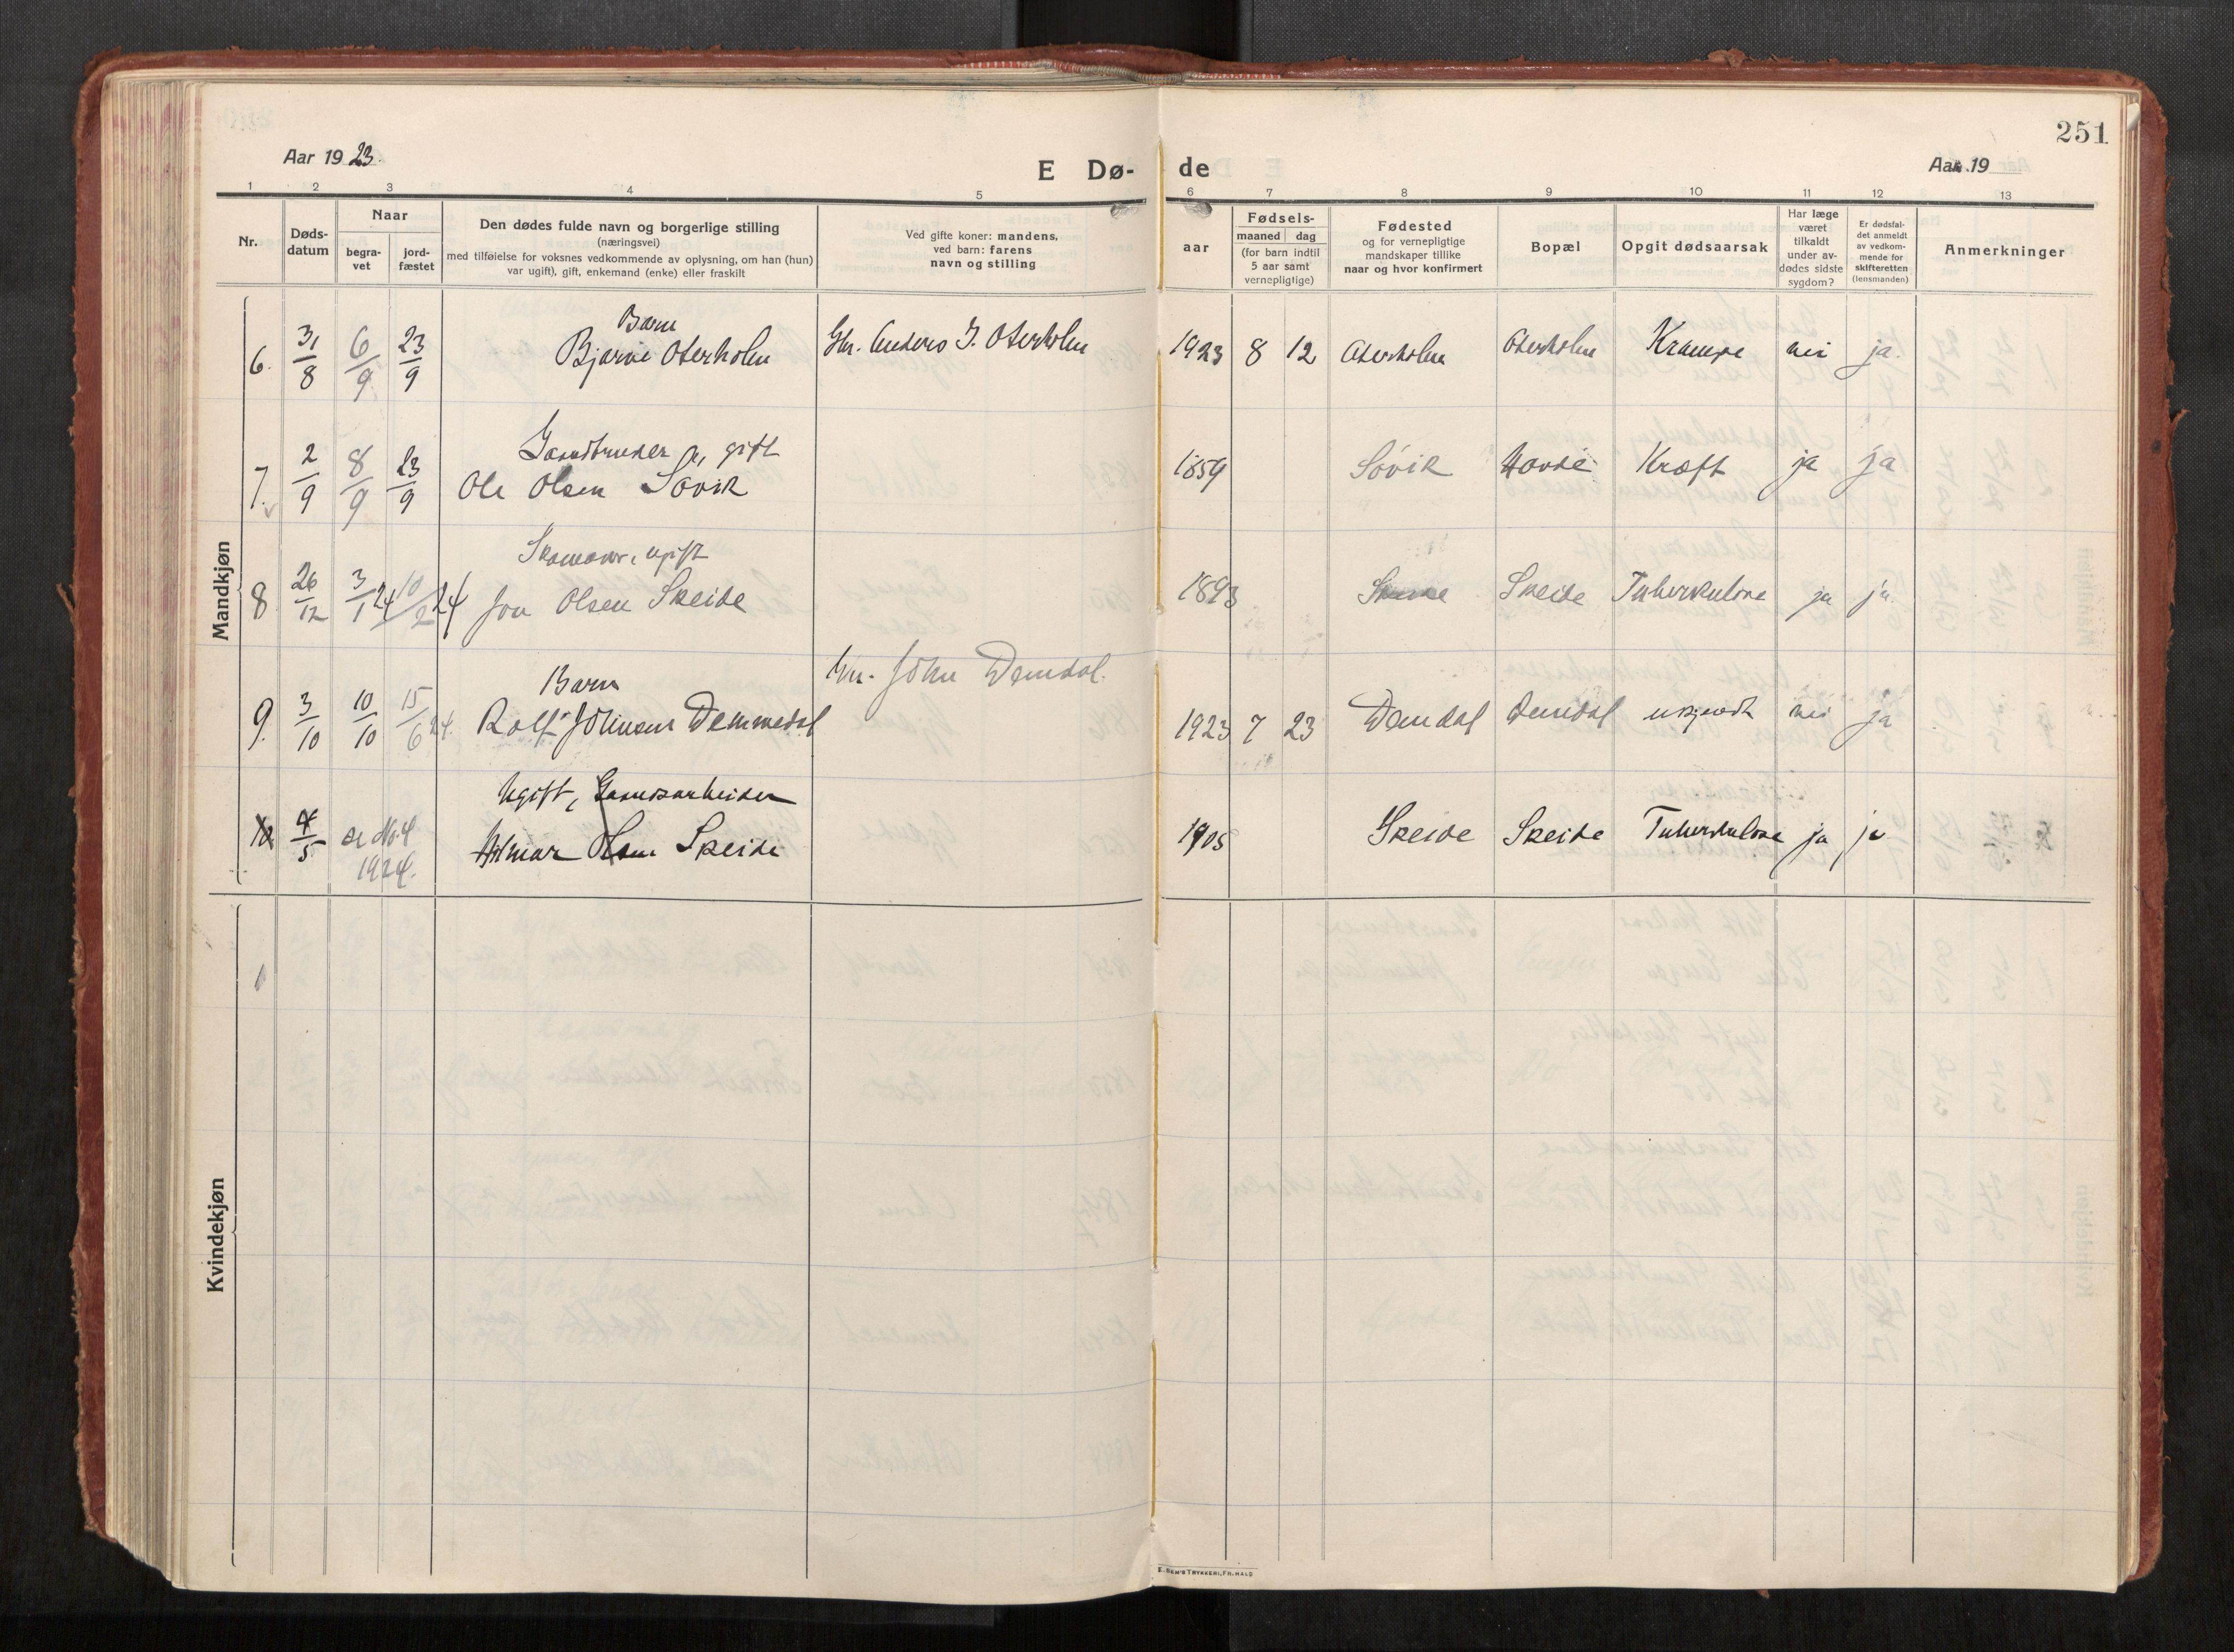 251
Aar 1923.
E Dø-
de
Aar 19
1 2 3 4 5 6 7 8 9 10 11 12 13
Nr.
Døds-
datum
Naar
begra-
vet
jord-
fæstet
Den dødes fulde navn og borgerlige stilling
(næringsvei)
med tilføielse for voksnes vedkommende av oplysning, om han (hun)
var ugift), gift, enkemand (enke) eller fraskilt
Ved gifte koner: mandens,
ved barn: farens
navn og stilling
Fødsels-
aar
maaned dag
(for barn indtil
5 aar samt
vernepligtige)
Fødested
og for vernepligtige
mandskaper tillike
naar og hvor konfirmert
Bopæl
Opgit dødsaarsak
Har læge
været
tilkaldt
under av-
dødes sidste
sygdom?
Er dødsfal-
det anmeldt
av vedkom-
mende for
skifteretten
(lensmanden)
Anmerkninger
Mandkjøn
Barn
6. 31/8 6/9 23/9 Bjarne Oterholm Gbr. Anders J. Oterholm 1923 8 12 Oterholm Oterholm Krampe nei ja.
Gaardbruker, gift
7. 2/9 8/9 23/9 Ole Olsen Søvik 1859 Søvik Havde Kræft ja ja
Skomaker, ugift
8 26/12 3/1 24 10/2 24 Jon Olsen Skeide 1893 Skeide Skeide Tuberkulose ja ja.
Barn
9. 3/10 10/10 15/6 24. Rolf Johnsen Demmedal Gbr. John Demdal. 1923 7 23 Demdal Demdal ukjendt nei ja
Ugift, Gaardsarbeider
10 4/5 se No. 4
1924.
Hilmar Olsen Skeide 1905 Skeide Skeide Tuberkulose ja ja
Kvindekjøn
1
E. SEM'S TRYKKERI, FR. HALD